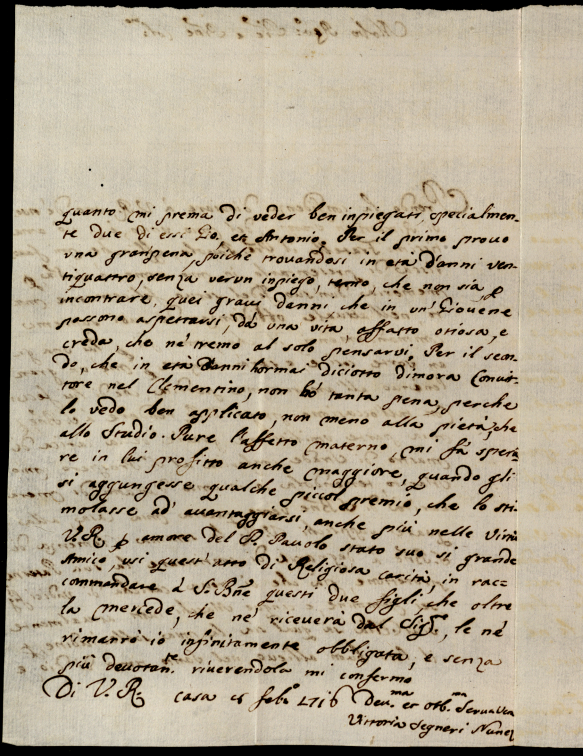 quanto mi prema di veder ben inpiegati, specialmen-
te due di essi Gio, et Antonio. Per il primo provo
una gran pena, poiche trovandosi in età d'anni ven-
tiquattro, senza verun inpiego, temo, che non sia p
incontrare, quei gravi danni, che in un' Giovene
possono aspettarsi, da una vita, affatto otiosa, e
creda, che ne' tremo al solo pensarvi. Per il secon-
do, che in età d'anni hormai diciotto dimora Convit-
tore nel Clementino, non hò tanta pena, perche
lo vedo ben applicato, non meno alla pietà, che
allo studio. Pure l'affetto materno, mi fà spera-
re in lui profitto anche maggiore, quando gli
si aggungesse qualche piccol premio, che lo sti-
molasse ad' avantaggiarsi, anche più nelle Virtù
V.R. p amore del P. Pauolo stato suo si grande
Amico, usi quest' atto di Religiosa carità, in rac=
commandare à S. Bne questi due figli, che oltre
la mercede, che ne' riceverà dal Sigre, le ne'
rimarrò io infinitamente obbligata, e senza
più devotamte riverendola mi confermo
Di V. R. casa febo 1716 Devma et obma Serva vera
Vittoria Segneri Nunez